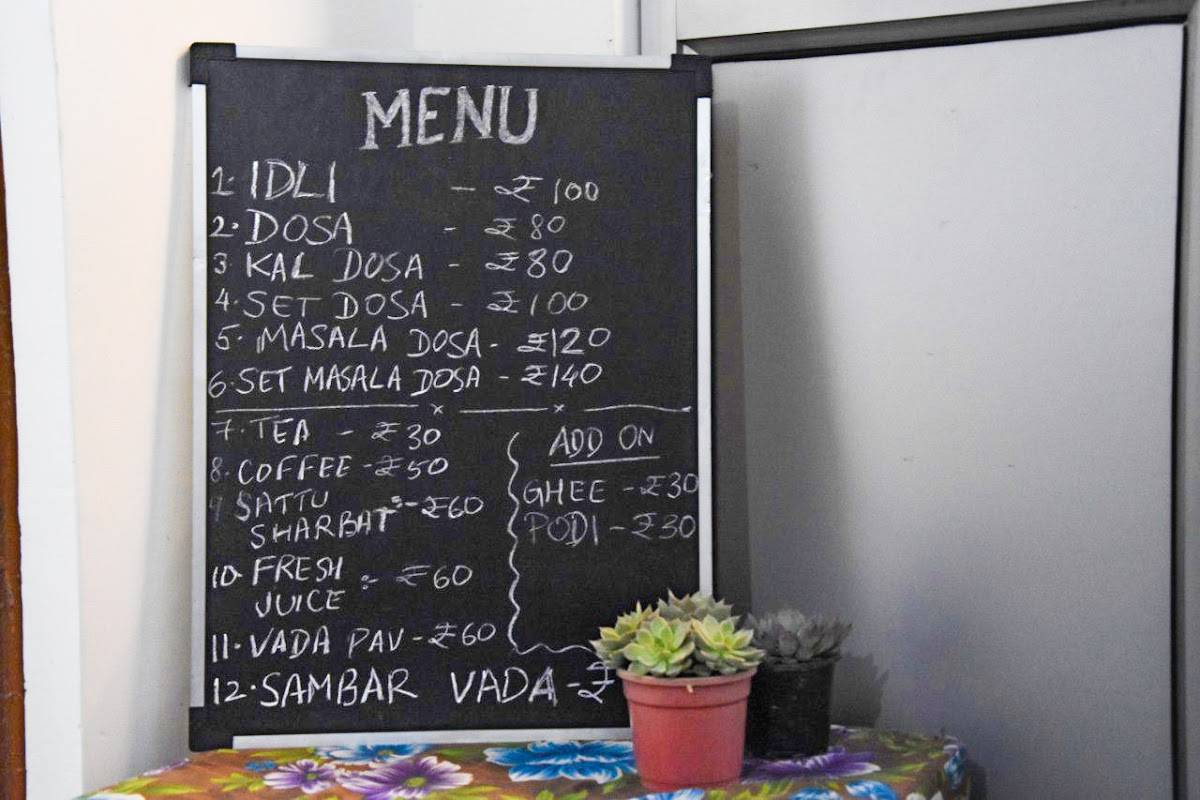 MENU
1. IDLI - ₹ 100
2. DOSA - ₹ 80
3 KAL DOSA - ₹80
4. SET DOSA - ₹100
5. MASALA DOSA - ₹120
6. SET MASALA DOSA - ₹140
7. TEA - ₹30
8. COFFEE - ₹50
9 SATTU
SHARBAT :- ₹60
10. FRESH
JUICE :- ₹60
11. VADA PAV - ₹60
12. SAMBAR VADA - ₹
ADD ON
GHEE - ₹30
PODI - ₹30